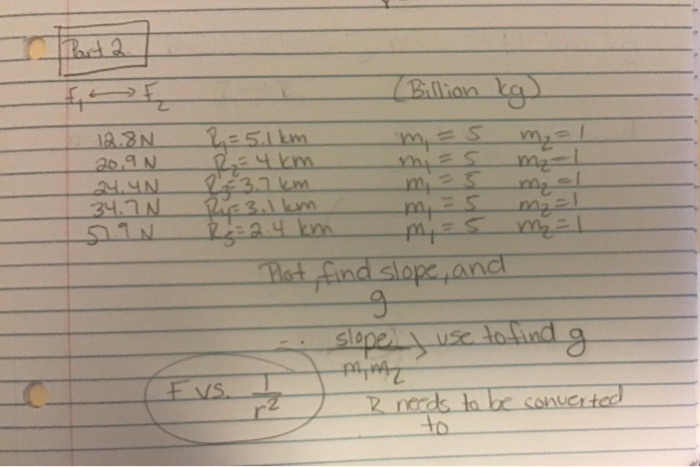 Part 2
F₁ ⟷ F₂ (Billion kg)
12.8N R₁ = 5.1 km m₁ = 5 m₂ = 1
20.9N R₂ = 4 km m₁ = 5 m₂ = 1
24.4N R₃ = 3.7 km m₁ = 5 m₂ = 1
34.7N R₄ = 3.1 km m₁ = 5 m₂ = 1
57.9N R₅ = 2.4 km m₁ = 5 m₂ = 1
Plot, find slope, and
g
slope } use to find g
m₁m₂
F vs. 1/r²
R needs to be converted
to